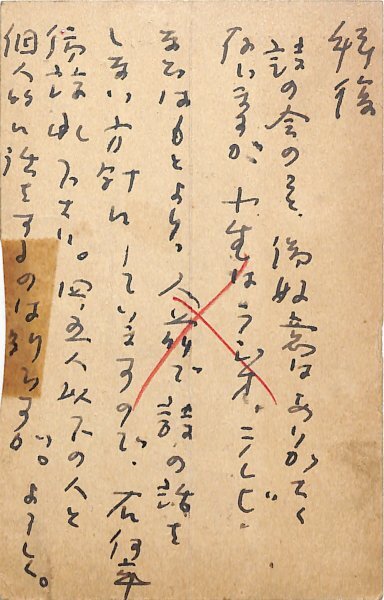 拝復
詩の会のこと、御好意はありがたく
ないますが、小生はラジオ、テレビ、
またはもとより、人前で詩の話を
しない方針にしていますので、右何卒
御諒承下さい。四五人以下の人と
個人的に話をするのはいいです。よろしく。